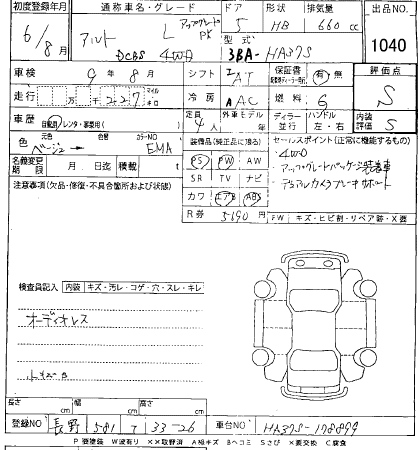 初度登録年月 通称車名・グレード ドア 形状 排気量 出品NO.
6/8月 アルト L アップグレードPK 5 HB 660 cc 1040
DCBS 4WD 型式 3BA-HA37S
車検 9年 8月 シフト IAT 保証書 有・無 評価点
走行 万 千227 マイル キロ 冷房 AAC 燃料 G S
車歴 自家用・レンタ・事業用( ) 定員 4人 外車モデル 年 ディーラー・並行 ハンドル 左・右 内装評価 S
色 元色 ベージュ→ 色替 カラーNO EMA 装備品(純正品に限る) セールスポイント(正常に機能するもの)
名義変更期限 月 日迄 積載 t PS PW AW ・4WD
注意事項(欠品・修復・不具合箇所および状態) SR TV ナビ ・アップグレードパッケージ装着車
カワ エアB ABS ・デュアルカメラブレーキサポート
R券 5690 円 FW キズ・ヒビ割・リペア跡・X要
検査員記入 内装 キズ・汚レ・コゲ・穴・スレ・キレ
オーディオレス
小キズ
長さ cm 幅 cm 高さ cm
登録NO 長野 581 て 33-26 車台NO HA37S-178899
P要塗装 W波有り ××取替済 A線キズ Bヘコミ Sさび ×要交換 C腐食